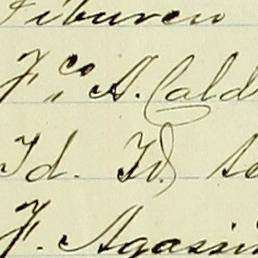 Tiburen
F.co A. Cald
Id. Id. te
F. Agassi